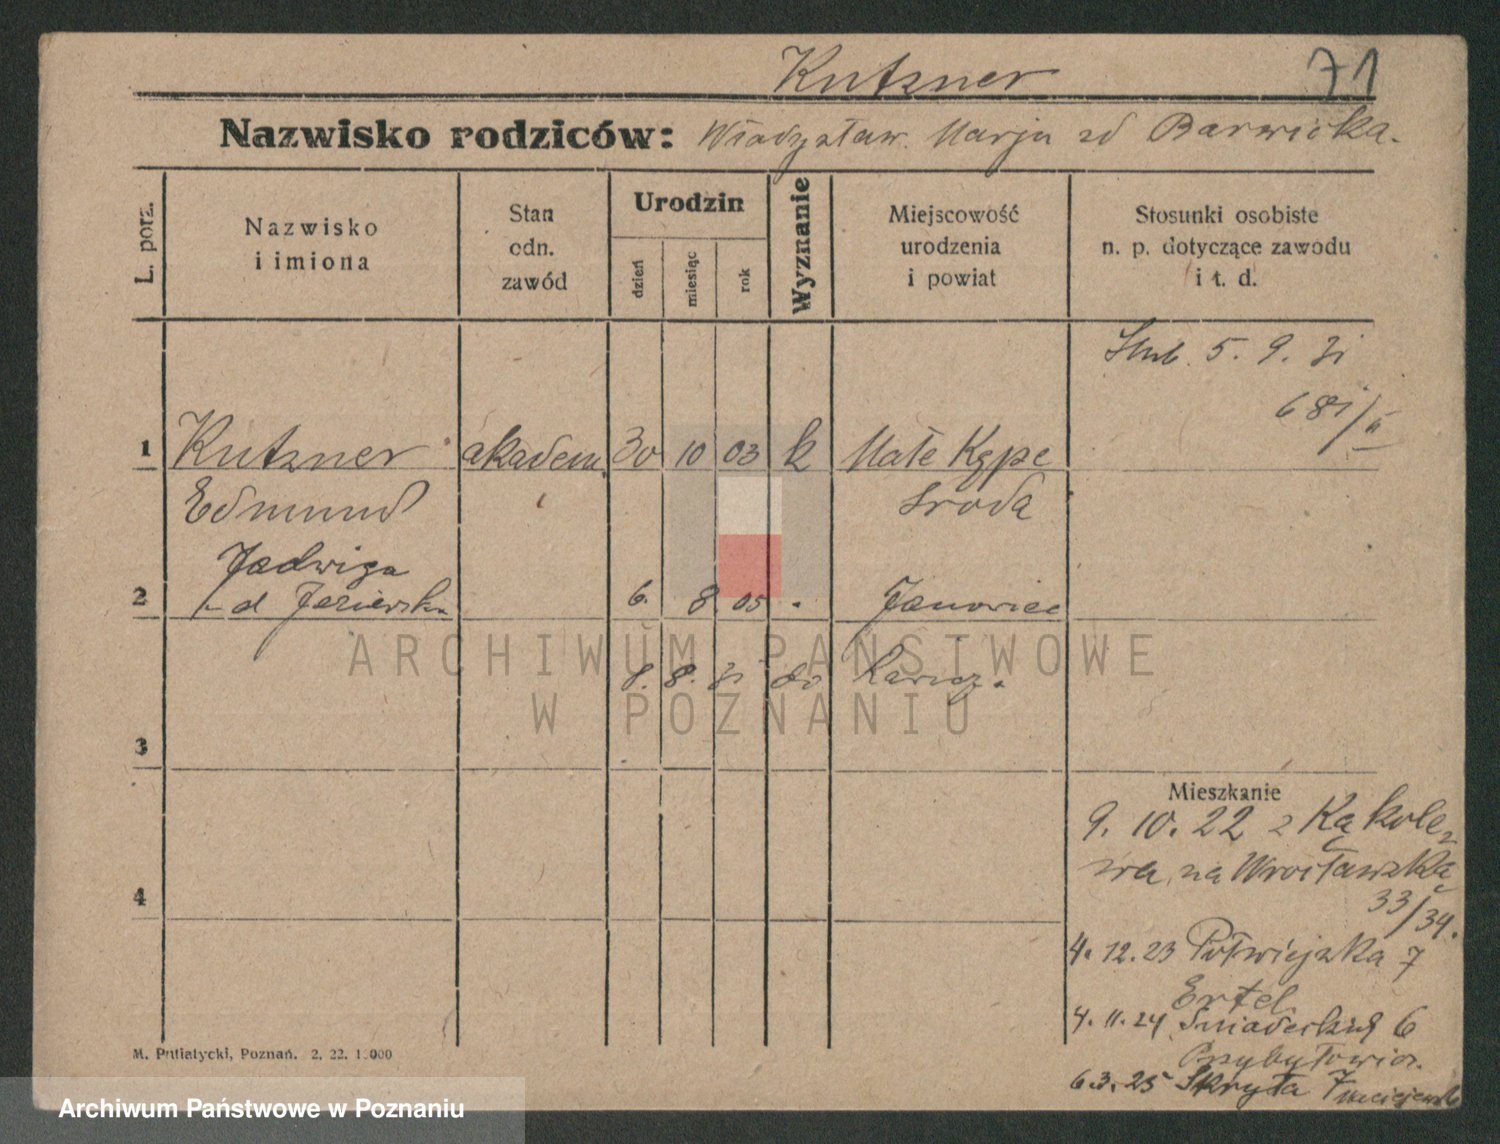 Kutzner 71
Nazwisko rodziców: Władysław. Marja zd Barwicka.
L. porz.
Nazwisko
i imiona
Stan
odn.
zawód
Urodzin
dzień
miesiąc
rok
Wyznanie
Miejscowość
urodzenia
i powiat
Stosunki osobiste
n. p. dotyczące zawodu
i t. d.
5. 9. 31
681/II
1 Kutzner akadem. 30 10 03 k Małe Kępe
Edmund Środa
Jadwiga
2 6. 8 05 Janowiec
8. 8. 31 do
3
Mieszkanie
9. 10. 22 z Kąkole-
wa, na Wrocławską
33/34.
4
4. 12. 23 Półwiejska 7
Ertel
4. 11. 24 Śniadeckich 6
6.3.25 Skryta 7
M. Putiatycki, Poznań. 2. 22. 1.000
ARCHIWUM PAŃSTWOWE
W POZNANIU
Archiwum Państwowe w Poznaniu